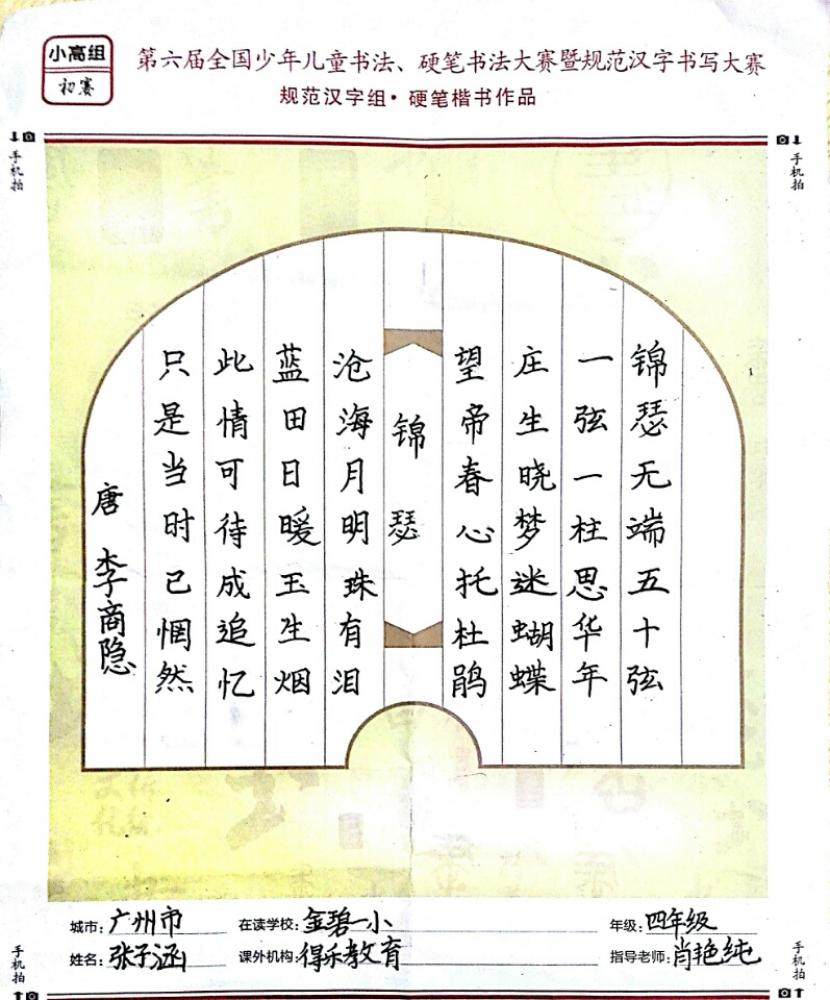 小高组
初赛
第六届全国少年儿童书法、硬笔书法大赛暨规范汉字书写大赛
规范汉字组·硬笔楷书作品
手机拍
手机拍
锦瑟无端五十弦
一弦一柱思华年
庄生晓梦迷蝴蝶
望帝春心托杜鹃
锦瑟
沧海月明珠有泪
蓝田日暖玉生烟
此情可待成追忆
只是当时已惘然
唐 李商隐
城市:广州市 在读学校:金碧一小 年级:四年级
姓名:张子涵 课外机构:得乐教育 指导老师:肖艳纯
手机拍
手机拍